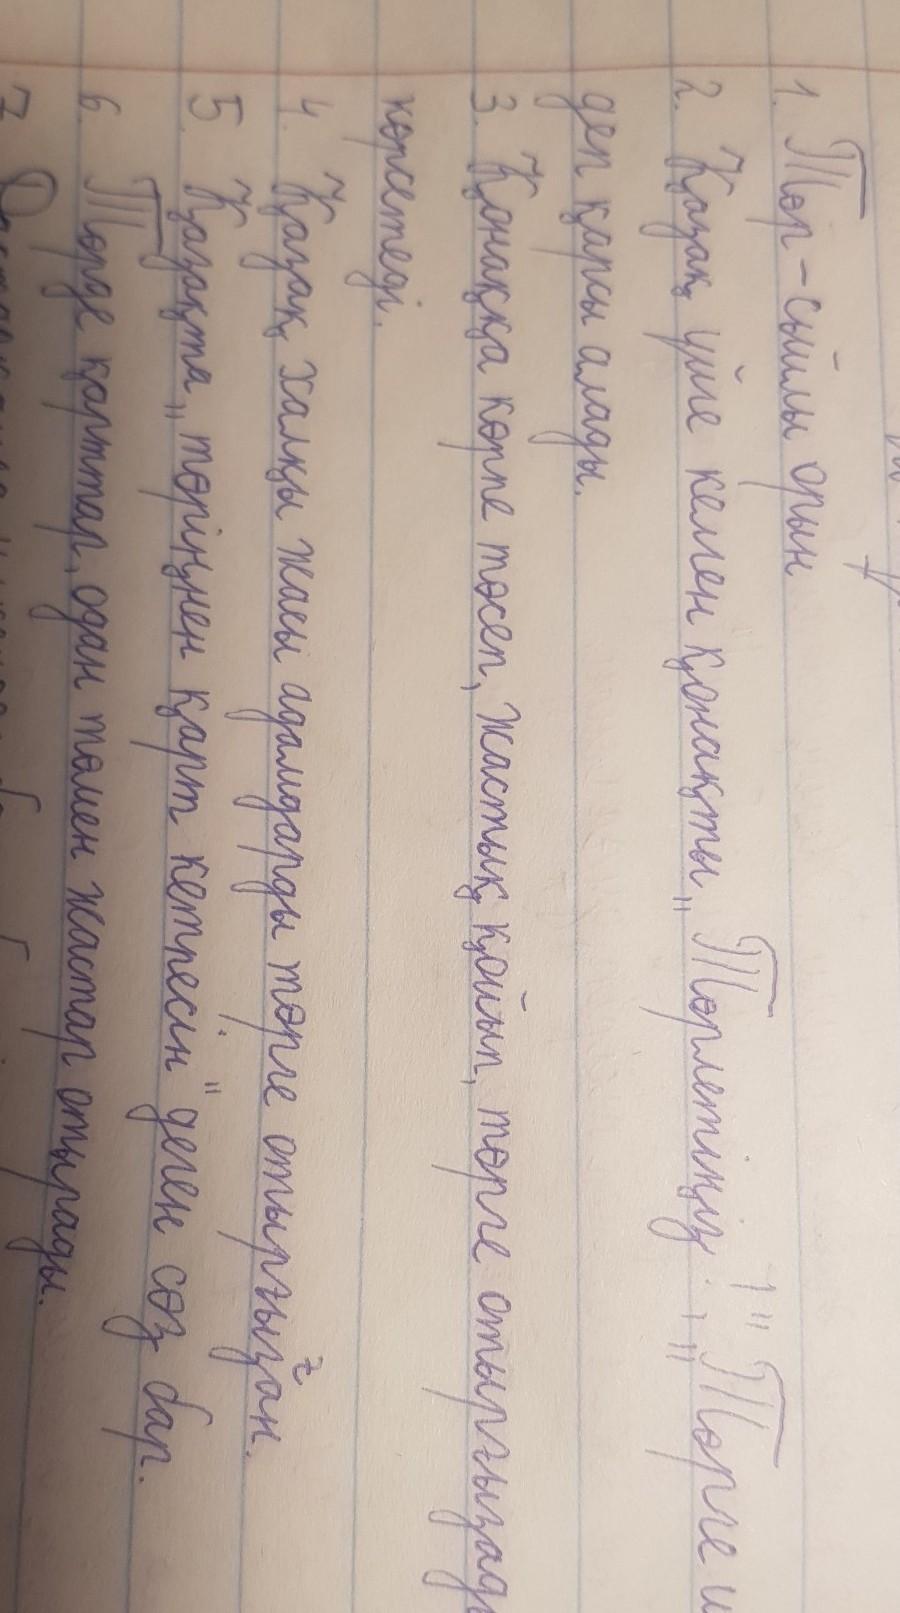 1. Төр - сыйлы орын
2. Қазақ үйге келген қонақты „Төрлетіңіз!", „Төрге
деп қарсы алады.
3. Қонаққа көрпе төсеп, жастық қойып, төрге отырғызад
көрсетеді.
4. Қазақ халқы жасы адамдарды төрге отырғызған.
5. Қазақта „төріңнен қарт кетпесін" деген сөз бар.
6. Төрде қарттар, одан төмен жастар отырады.
7.